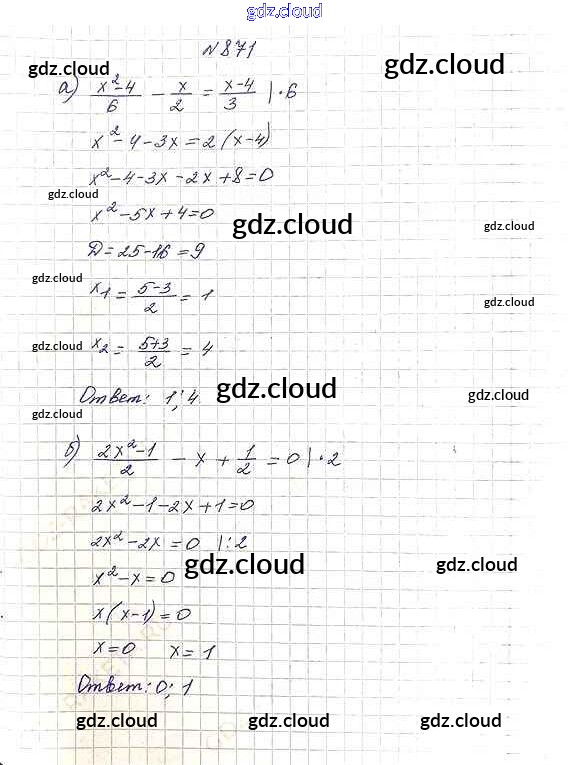 gdz.cloud
N 871
gdz.cloud gdz.cloud
а) (x²-4)/6 - x/2 = (x-4)/3 |·6
x²-4-3x=2(x-4)
x²-4-3x-2x+8=0
gdz.cloud
x²-5x+4=0 gdz.cloud gdz.cloud
Д=25-16=9
gdz.cloud
x₁ = (5-3)/2 = 1 gdz.cloud
gdz.cloud x₂ = (5+3)/2 = 4
Ответ: 1; 4 gdz.cloud gdz.cloud
gdz.cloud
б) (2x²-1)/2 - x + 1/2 = 0 |·2
2x²-1-2x+1=0
2x²-2x=0 |:2
gdz.cloud gdz.cloud
x²-x=0
x(x-1)=0
x=0 x=1
Ответ: 0; 1
gdz.cloud gdz.cloud gdz.cloud